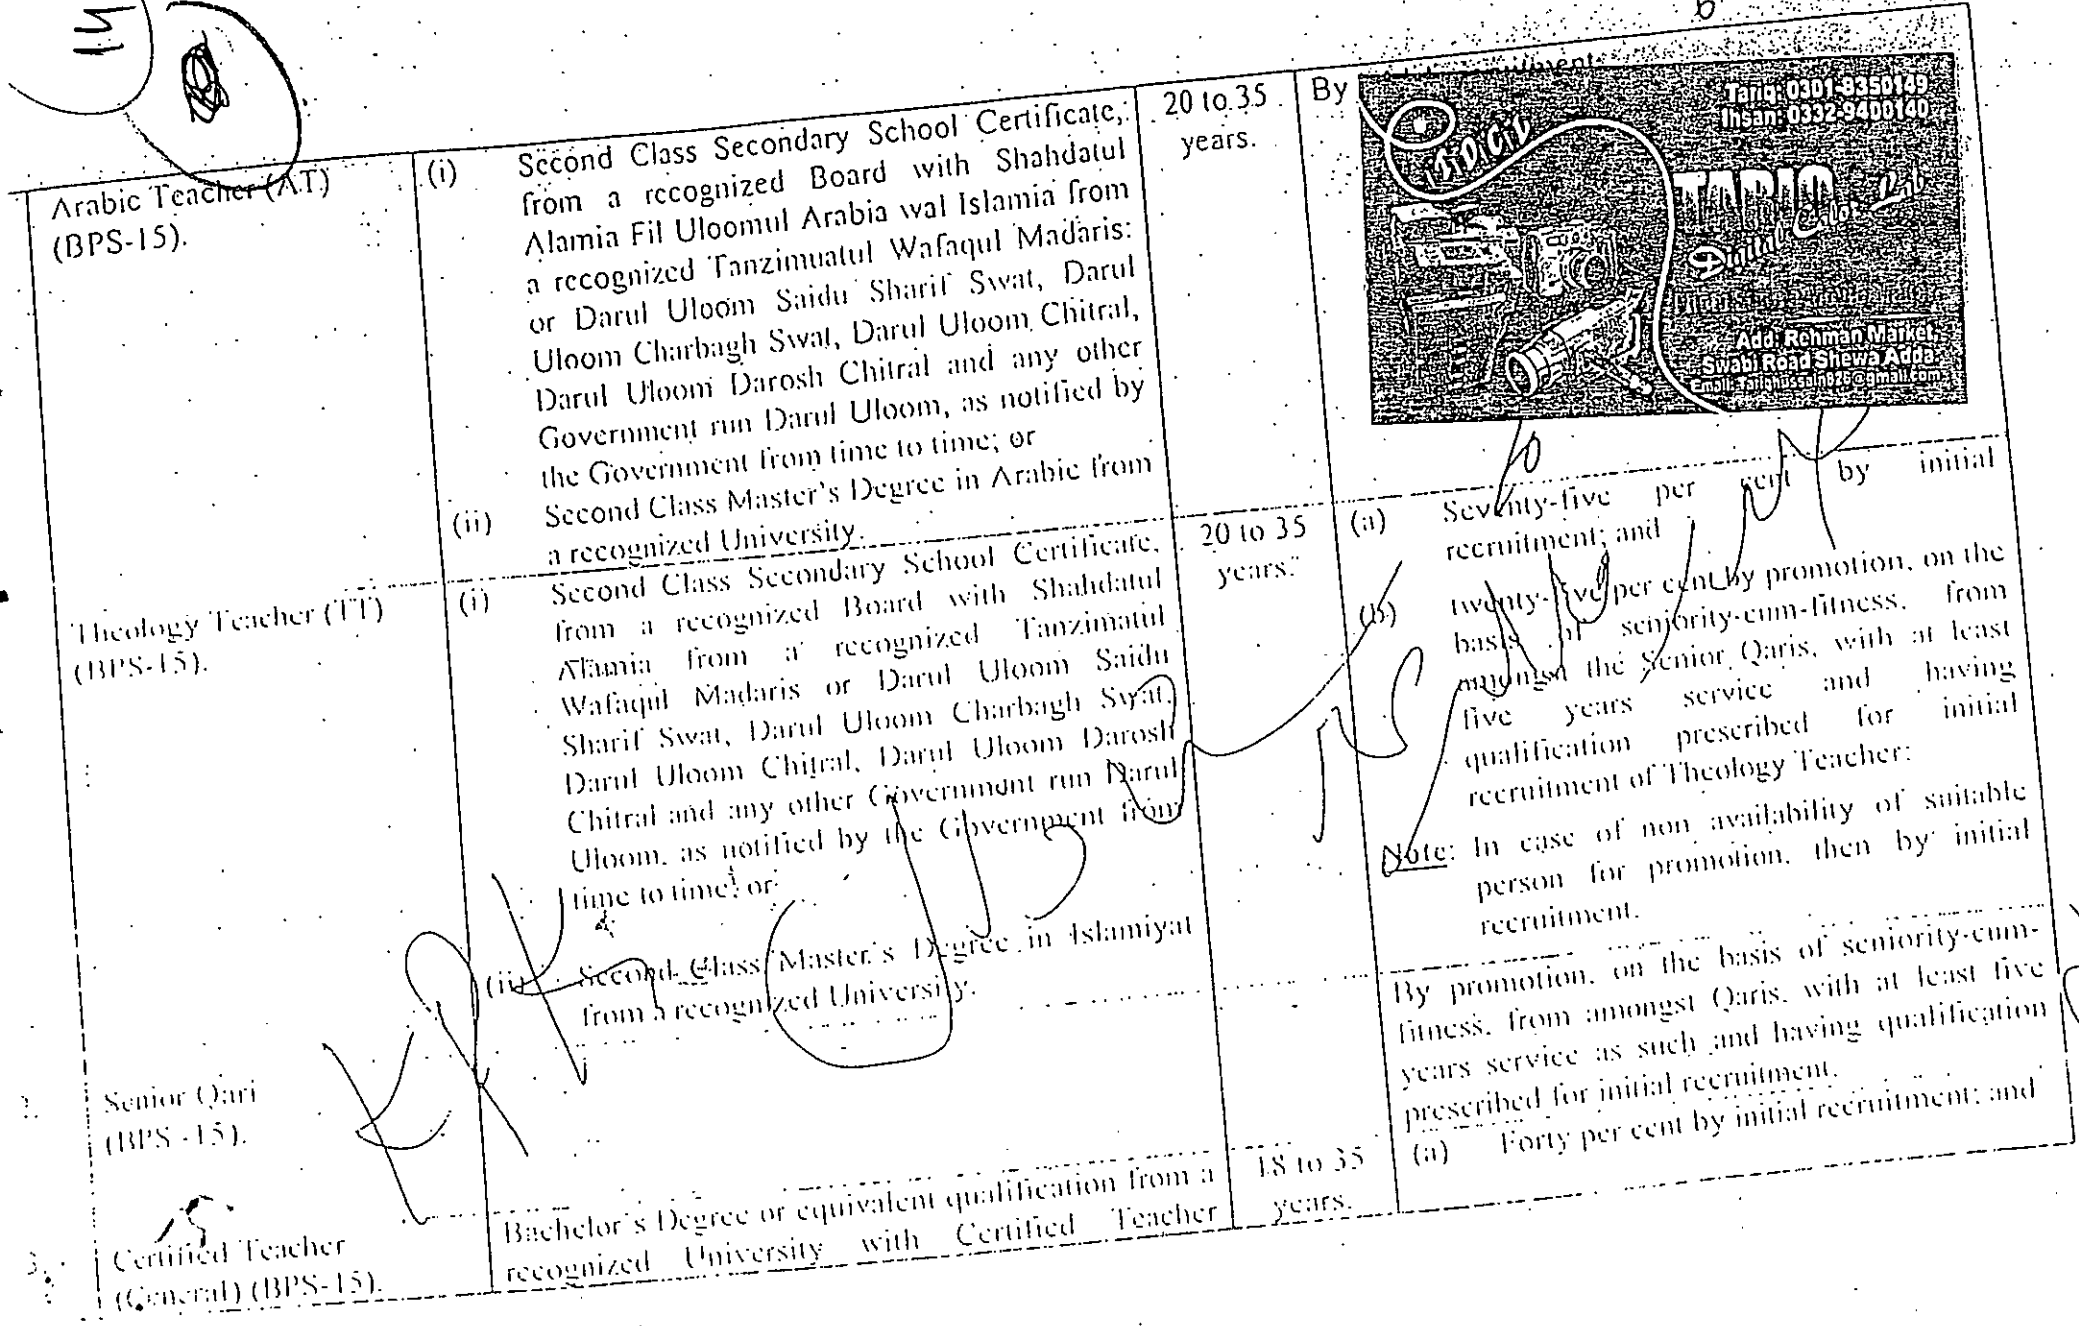 Arabic Teacher (AT)
(BPS-15).
(i) Second Class Secondary School Certificate,
from a recognized Board with Shahdatul
Alamia Fil Uloomul Arabia wal Islamia from
a recognized Tanzimuatul Wafaqul Madaris:
or Darul Uloom Saidu Sharif Swat, Darul
Uloom Charbagh Swat, Darul Uloom Chitral,
Darul Uloom Darosh Chitral and any other
Government run Darul Uloom, as notified by
the Government from time to time; or
(ii) Second Class Master's Degree in Arabic from
a recognized University.
20 to 35
years.
By
Tariq: 0301-8350149
Ihsan: 0332-9400140
TARIQ
Digital Color Lab
Add: Rehman Market
Swabi Road Shewa Adda
Email: Tariqhussain826@gmail.com
Theology Teacher (TT)
(BPS-15).
(i) Second Class Secondary School Certificate,
from a recognized Board with Shahdatul
Alamia from a recognized Tanzimatul
Wafaqul Madaris or Darul Uloom Saidu
Sharif Swat, Darul Uloom Charbagh Swat,
Darul Uloom Chitral, Darul Uloom Darosh
Chitral and any other Government run Darul
Uloom, as notified by the Government from
time to time; or
(ii) Second Class Master's Degree in Islamiyat
from a recognized University.
20 to 35
years.
(a) Seventy-five per cent by initial
recruitment; and
(b) twenty-five per cent by promotion, on the
basis of seniority-cum-fitness, from
amongst the Senior Qaris, with at least
five years service and having
qualification prescribed for initial
recruitment of Theology Teacher:
Note: In case of non availability of suitable
person for promotion, then by initial
recruitment.
2. Senior Qari
(BPS -15).
By promotion, on the basis of seniority-cum-
fitness, from amongst Qaris, with at least five
years service as such and having qualification
prescribed for initial recruitment.
3. Certified Teacher
(General) (BPS-15).
Bachelor's Degree or equivalent qualification from a
recognized University with Certified Teacher
18 to 35
years.
(a) Forty per cent by initial recruitment; and